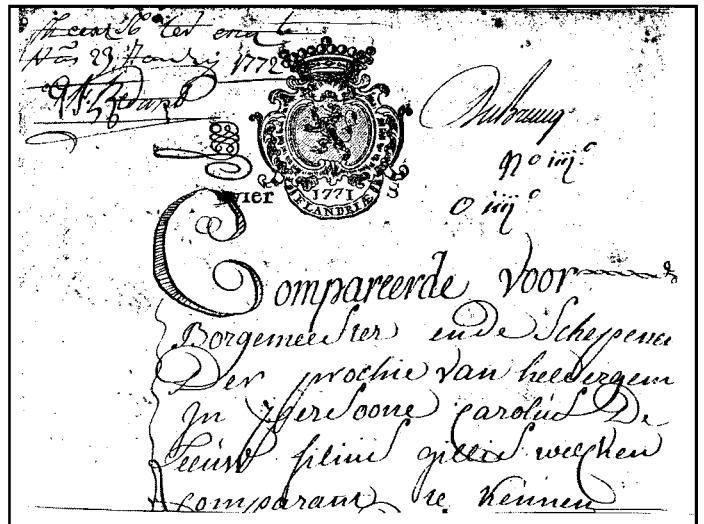 29 1772
No iiij c
O iiij c
vier
1771
FLANDRIÆ
Compareerde voor
Borgemeester ende Schepenen
Der prochie van heldergem
Jn persoone Carolus De
Leeuw filius gillis welcken
Comparant te kennen